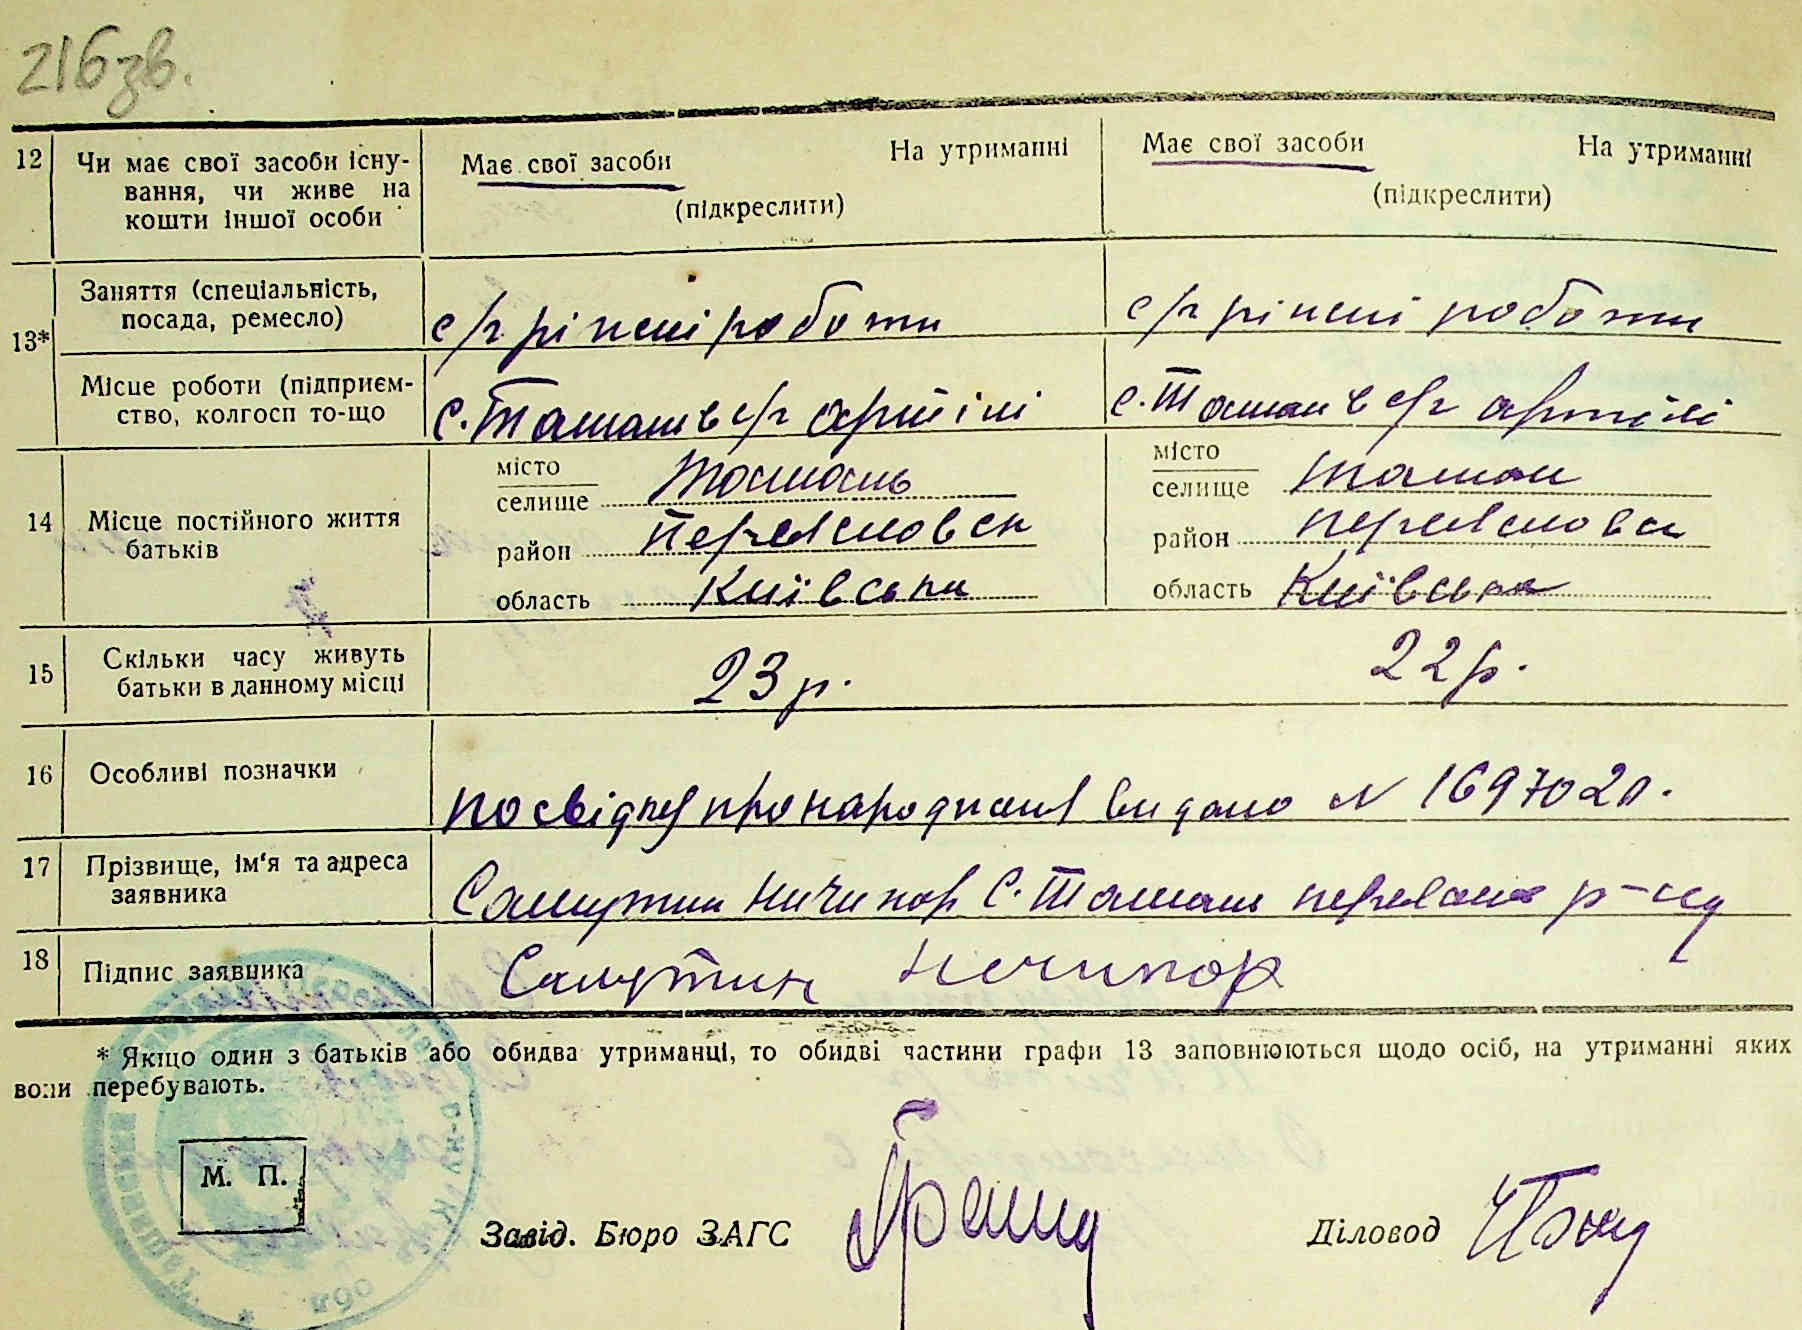 216зв.
12 Чи має свої засоби існу-
вання, чи живе на
кошти іншої особи
Має свої засоби На утриманні
(підкреслити)
Має свої засоби На утриманні
(підкреслити)
13*
Заняття (спеціальність,
посада, ремесло)
с/г різні роботи
с/г різні роботи
Місце роботи (підприєм-
ство, колгосп то-що
с. Ташань в с/г артілі
с. Ташан в с/г артілі
14 Місце постійного життя
батьків
місто
селище Ташань
район Переяславськ
область Київська
місто
селище Ташан
район Переяславськ
область Київська
15 Скільки часу живуть
батьки в данному місці
23 р.
22 р.
16 Особливі позначки
посвідку про народження видано №
17 Прізвище, ім'я та адреса
заявника
Самутин Ничипор с. Ташань р-ну
18 Підпис заявника
Самутин Ничипор
* Якщо один з батьків або обидва утриманці, то обидві частини графи 13 заповнюються щодо осіб, на утриманні яких
вони перебувають.
М. П.
Завід. Бюро ЗАГС
Діловод